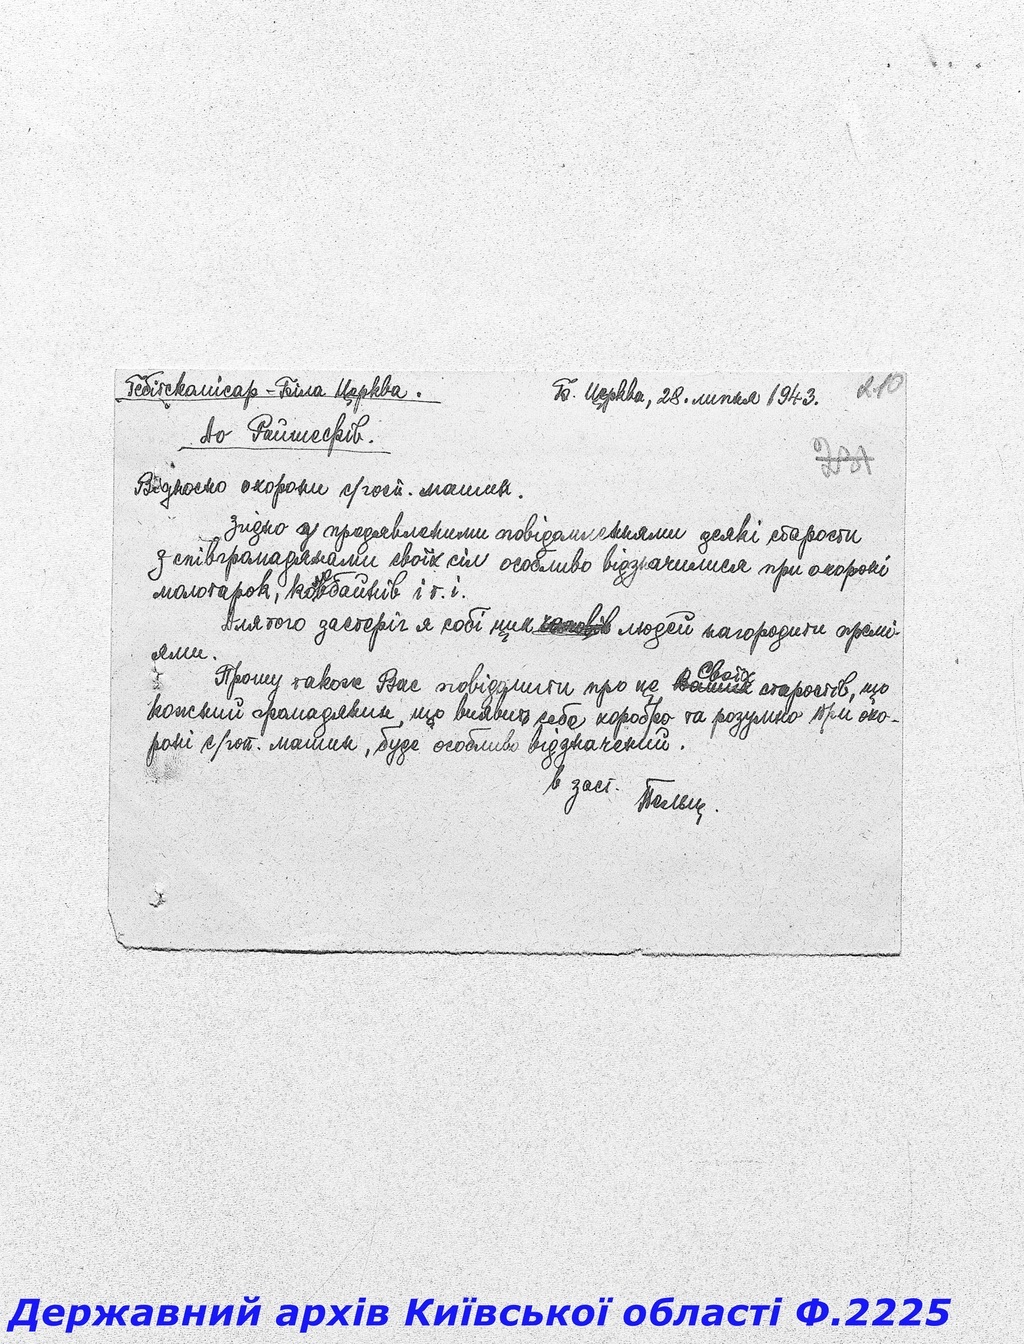 Гебітскомісар - Біла Церква.
Б. Церква, 28. липня 1943.
210
До Райшефів.
231
Відносно охорони с/госп. машин.
Згідно з предявленими повідомленнями деякі старости
з співгромадянами своїх сіл особливо відзначилися при охороні
молотарок, комбайнів і т. і.
Для того застеріг я собі цих людей нагородити премі-
ями.
Прошу також Вас повідомити про це своїх старостів, що
кожний громадянин, що виявить себе хоробро та розумно при охо-
роні с/госп. машин, буде особливо відзначений.
в заст. Пельц.
Державний архів Київської області Ф.2225